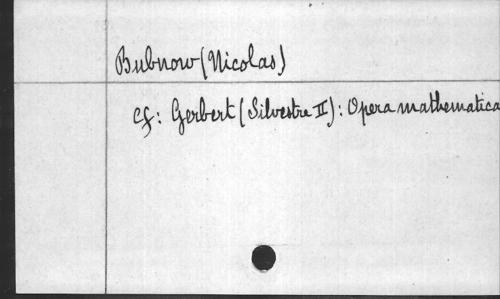 Bubnow (Nicolas)
cf: Gerbert (Silvestre II): Opera mathematica